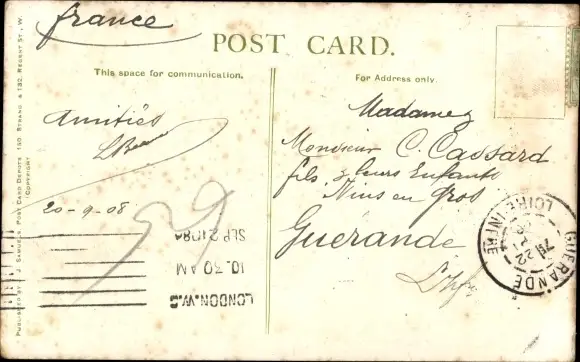 france
POST CARD.
This space for communication.
For Address only.
Amitiés
20-9-08
Madame
Monsieur C. Cassard
fils & leurs Enfants
Vins en gros
Guérande
LONDON.W.C
10.30 AM
SEP 21 08
GUERANDE
LOIRE INFRE
PUBLISHED BY J. SAMUELS, POST CARD DEPOTS, 150, STRAND & 132, REGENT ST., W.
COPYRIGHT